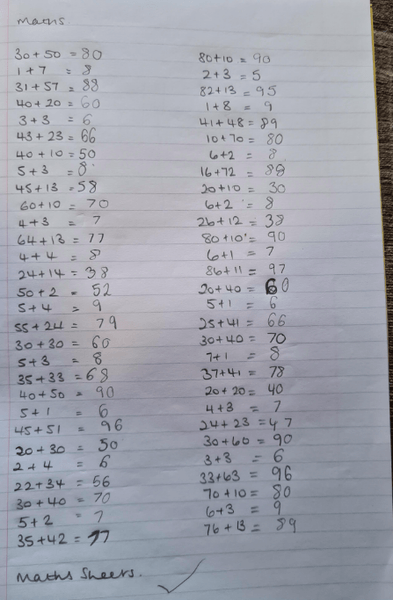 maths
30+50 = 80
1+7 = 8
31+57 = 88
40+20 = 60
3+3 = 6
43+23 = 66
40+10 = 50
5+3 = 8
45+13 = 58
60+10 = 70
4+3 = 7
64+13 = 77
4+4 = 8
24+14 = 38
50+2 = 52
5+4 = 9
55+24 = 79
30+30 = 60
5+3 = 8
35+33 = 68
40+50 = 90
5+1 = 6
45+51 = 96
20+30 = 50
2+4 = 6
22+34 = 56
30+40 = 70
5+2 = 7
35+42 = 77
80+10 = 90
2+3 = 5
82+13 = 95
1+8 = 9
41+48 = 89
10+70 = 80
6+2 = 8
16+72 = 88
20+10 = 30
6+2 = 8
26+12 = 38
80+10 = 90
6+1 = 7
86+11 = 97
20+40 = 60
5+1 = 6
25+41 = 66
30+40 = 70
7+1 = 8
37+41 = 78
20+20 = 40
4+3 = 7
24+23 = 47
30+60 = 90
3+3 = 6
33+63 = 96
70+10 = 80
6+3 = 9
76+13 = 89
Maths Sheets.